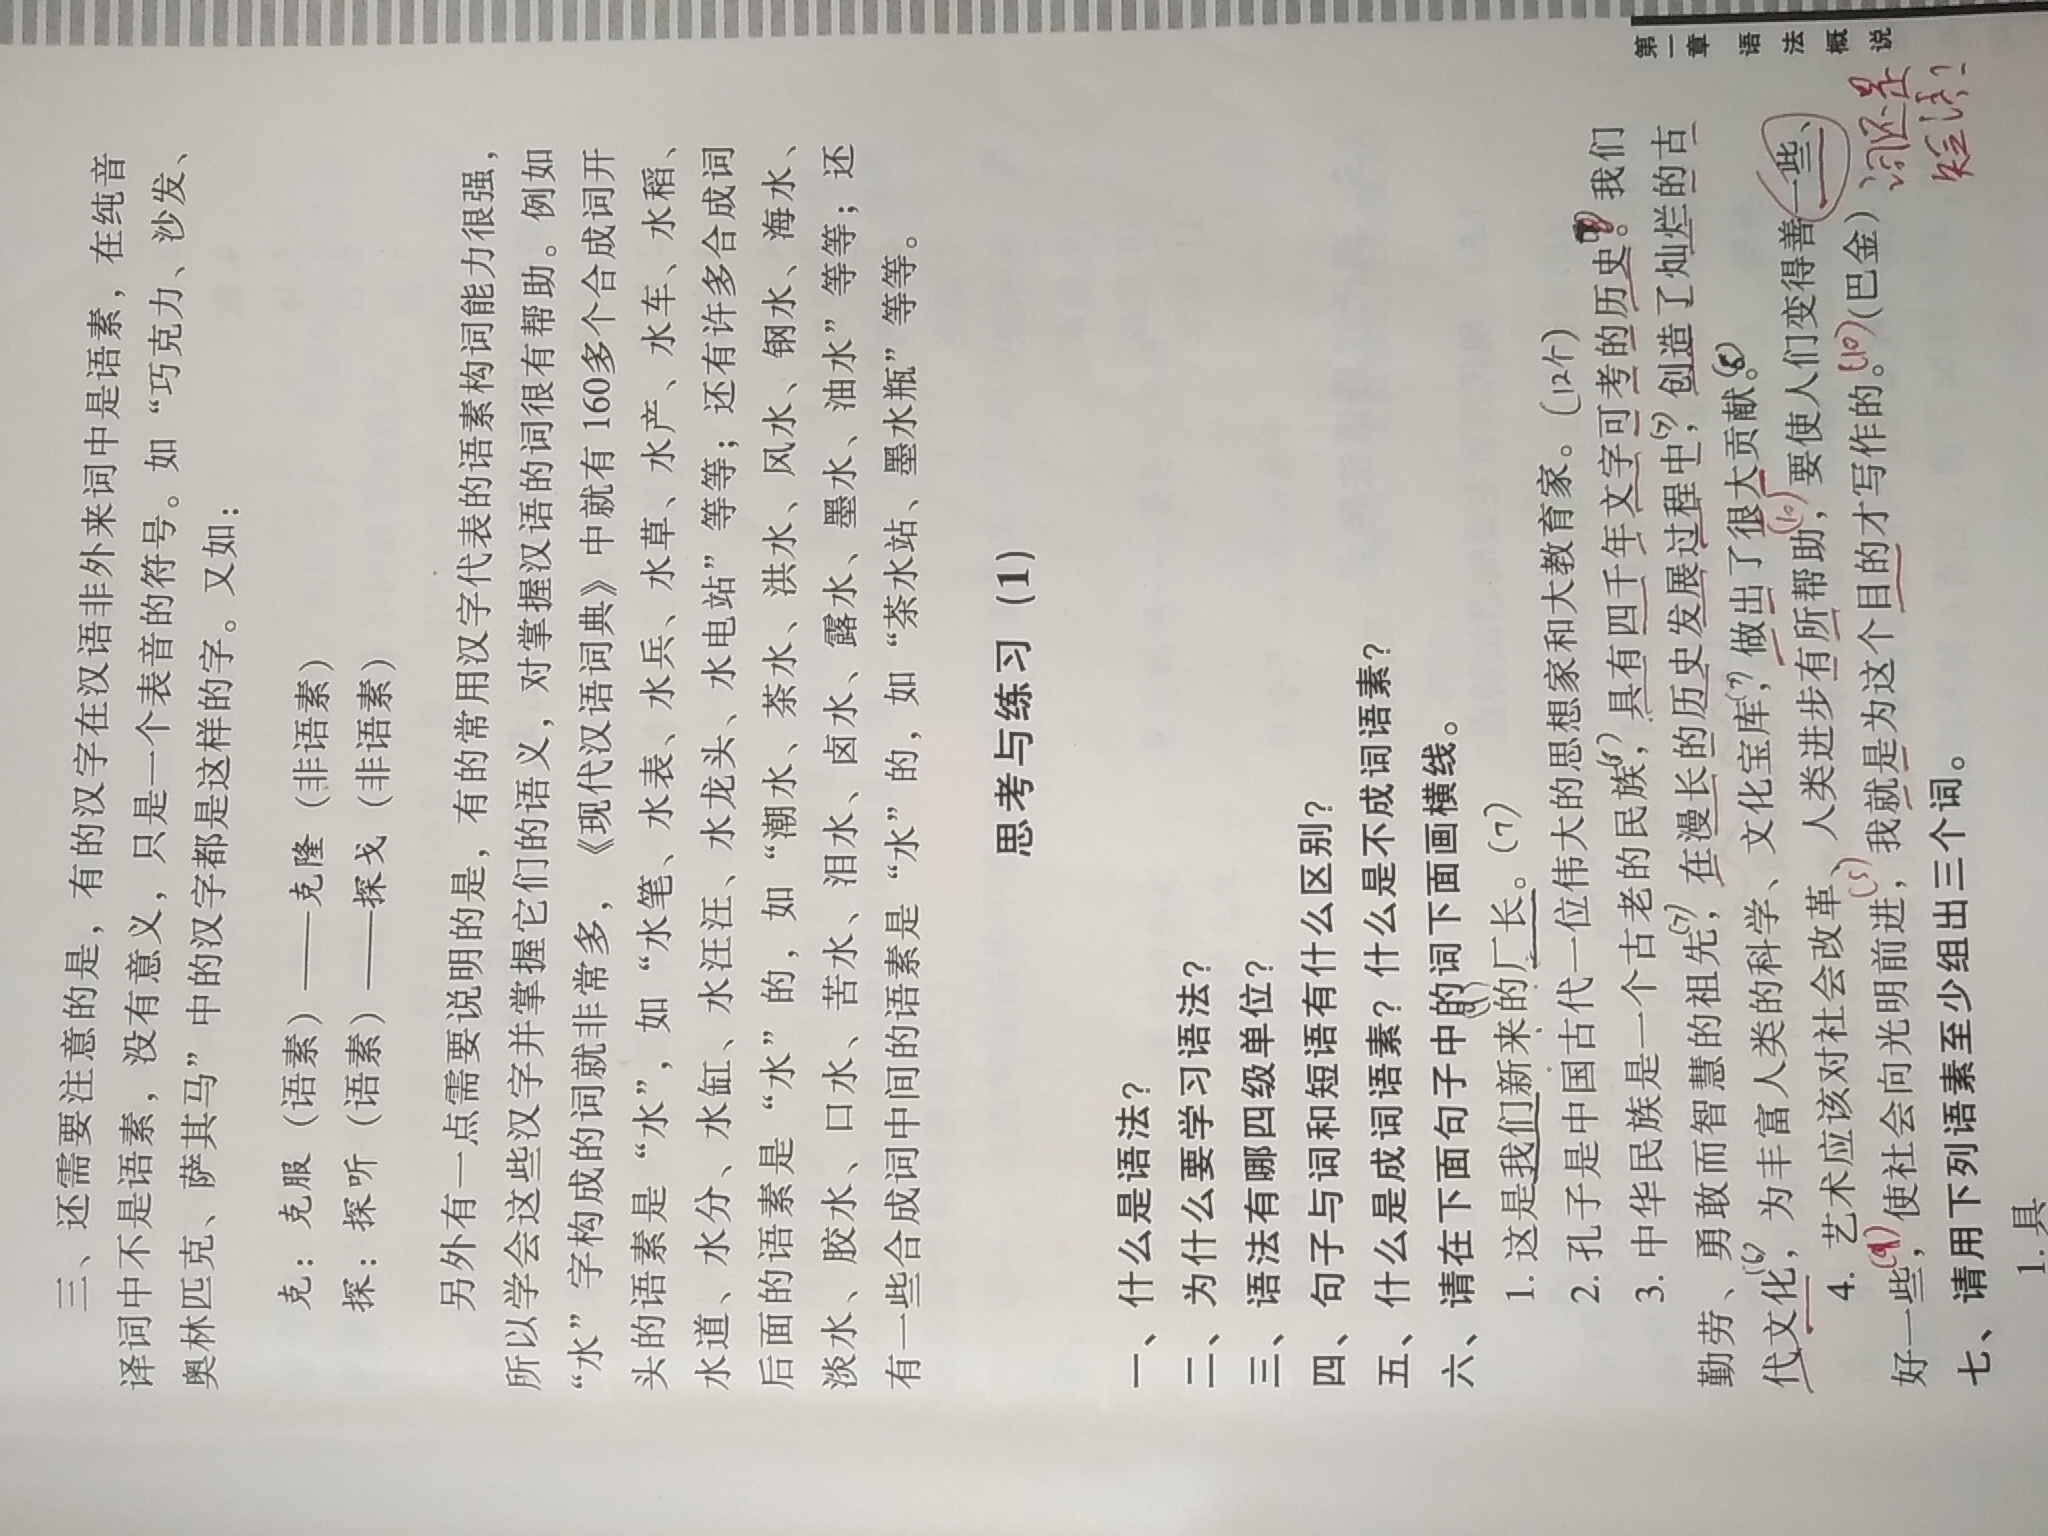 第一章 语法概说
三、还需要注意的是，有的汉字在汉语非外来词中是语素，在纯音
译词中不是语素，没有意义，只是一个表音的符号。如“巧克力、沙发、
奥林匹克、萨其马”中的汉字都是这样的字。又如：
克：克服（语素）——克隆（非语素）
探：探听（语素）——探戈（非语素）
另外有一点需要说明的是，有的常用汉字代表的语素构词能力很强，
所以学会这些汉字并掌握它们的语义，对掌握汉语的词很有帮助。例如
“水”字构成的词就非常多，《现代汉语词典》中就有160多个合成词开
头的语素是“水”，如“水笔、水表、水兵、水草、水产、水车、水稻、
水道、水分、水缸、水汪汪、水龙头、水电站”等等；还有许多合成词
后面的语素是“水”的，如“潮水、茶水、洪水、风水、钢水、海水、
淡水、胶水、口水、苦水、泪水、卤水、露水、墨水、油水”等等；还
有一些合成词中间的语素是“水”的，如“茶水站、墨水瓶”等等。
思考与练习（1）
一、什么是语法？
二、为什么要学习语法？
三、语法有哪四级单位？
四、句子与词和短语有什么区别？
五、什么是成词语素？什么是不成词语素？
六、请在下面句子中的词下面画横线。
1. 这是我们新来的厂长。(7)
2. 孔子是中国古代一位伟大的思想家和大教育家。(12个)
3. 中华民族是一个古老的民族，具有四千年文字可考的历史。我们
勤劳、勇敢而智慧的祖先，(7)在漫长的历史发展过程中，(7)创造了灿烂的古
代文化，(6)为丰富人类的科学、文化宝库，(7)做出了很大贡献。(8)
4. 艺术应该对社会改革、人类进步有所帮助，(10)要使人们变得善一些、
好一些，(9)使社会向光明前进，(5)我就是为这个目的才写作的。(10)（巴金）
词还是
短语？
七、请用下列语素至少组出三个词。
1. 具